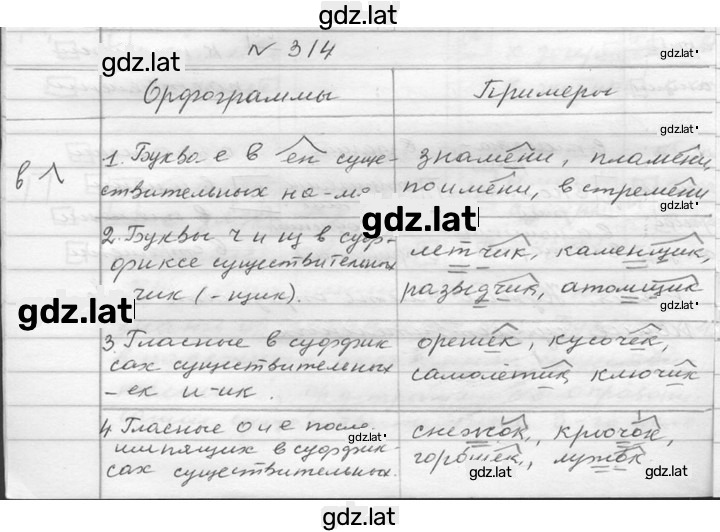 gdz.lat
gdz.lat
№ 314
gdz.lat
Орфограммы
Примеры
gdz.lat
в ^
1. Буква е в ен суще-
ствительных на -мя
знамени, пламени,
по имени, в стремени
gdz.lat
gdz.lat
2. Буквы ч и щ в суф-
фиксе существительных
чик (-щик).
летчик, каменщик,
разведчик, атомщик
gdz.lat
gdz.lat
gdz.lat
3. Гласные в суффик
сах существительных
-ек и -ик.
орешек, кусочек,
самолётик, ключик
4. Гласные о и е после
шипящих в суффик-
сах существительных.
снежок, крючок,
горошек, лужок.
gdz.lat
gdz.lat
gdz.lat
gdz.lat